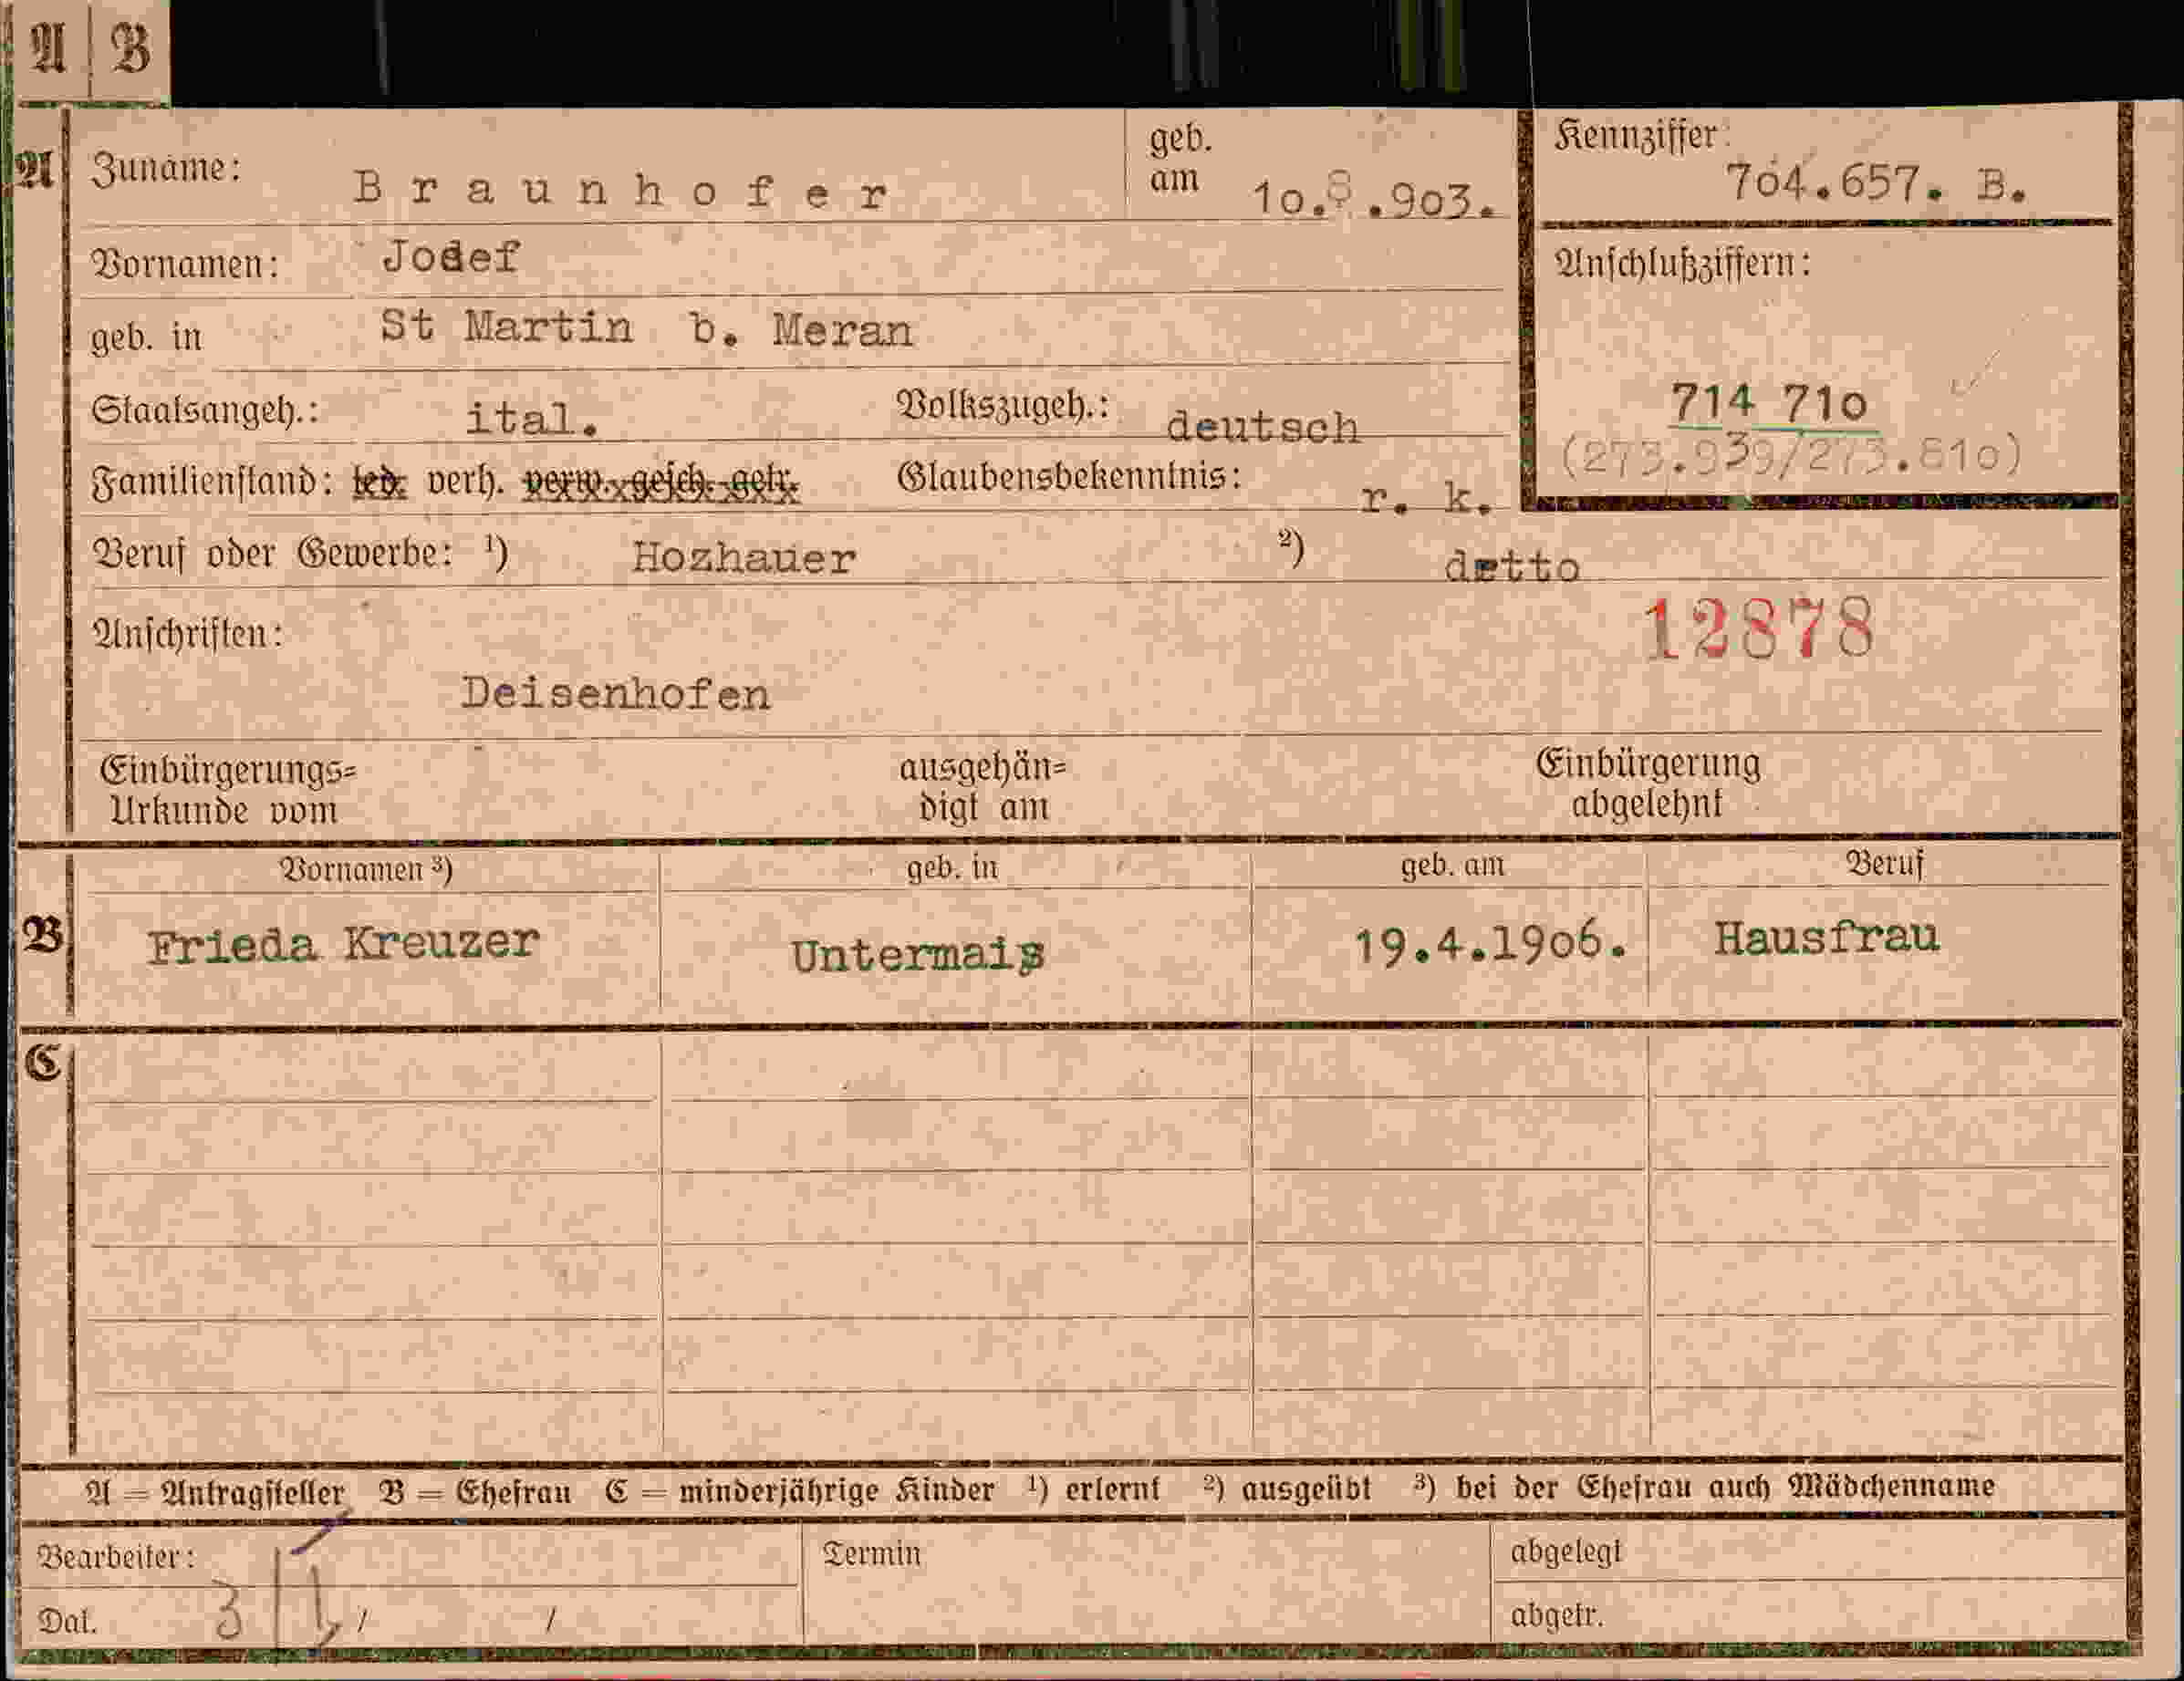 A B
A Zuname: Braunhofer geb. am 10.8.903. Kennziffer: 704.657. B.
Vornamen: Josef Anschlußziffern:
geb. in St Martin b. Meran
Staatsangeh.: ital. Volkszugeh.: deutsch 714 710
Familienstand: led. verh. verw. gesch. getr. Glaubensbekenntnis: r. k. (273.939/273.810)
Beruf oder Gewerbe: ¹) Hozhauer ²) detto
Anschriften: 12878
Deisenhofen
Einbürgerungs= ausgehän= Einbürgerung
Urkunde vom digt am abgelehnt
Vornamen ³) geb. in geb. am Beruf
B Frieda Kreuzer Untermais 19.4.1906. Hausfrau
C
A = Antragsteller B = Ehefrau C = minderjährige Kinder ¹) erlernt ²) ausgeübt ³) bei der Ehefrau auch Mädchenname
Bearbeiter: Termin abgelegt
Dat. / / abgetr.